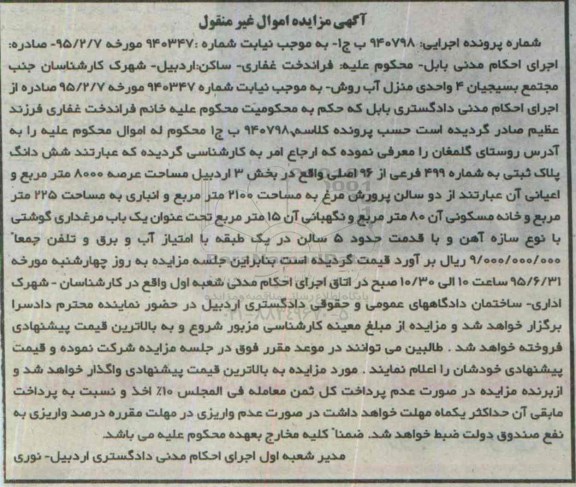 آگهی مزایده اموال غیر منقول
شماره پرونده اجرایی: ۹۴۰۷۹۸ ب ج۱- به موجب نیابت شماره :۹۴۰۳۴۷ مورخه ۹۵/۲/۷- صادره:
اجرای احکام مدنی بابل- محکوم علیه: فراندخت غفاری- ساکن:اردبیل- شهرک کارشناسان جنب
مجتمع بسیجیان ۴ واحدی منزل آب روش- به موجب نیابت شماره ۹۴۰۳۴۷ مورخه ۹۵/۲/۷ صادره از
اجرای احکام مدنی دادگستری بابل که حکم به محکومیت محکوم علیه خانم فراندخت غفاری فرزند
عظیم صادر گردیده است حسب پرونده کلاسه ۹۴۰۷۹۸ ب ج۱ محکوم له اموال محکوم علیه را به
آدرس روستای گلمغان را معرفی نموده که ارجاع امر به کارشناسی گردیده که عبارتند شش دانگ
پلاک ثبتی به شماره ۴۹۹ فرعی از ۹۶ اصلی واقع در بخش ۳ اردبیل مساحت عرصه ۸۰۰۰ متر مربع و
اعیانی آن عبارتند از دو سالن پرورش مرغ به مساحت ۲۱۰۰ متر مربع و انباری به مساحت ۲۲۵ متر
مربع و خانه مسکونی آن ۸۰ متر مربع و نگهبانی آن ۱۵ متر مربع تحت عنوان یک باب مرغداری گوشتی
با نوع سازه آهن و با قدمت حدود ۵ سالن در یک طبقه با امتیاز آب و برق و تلفن جمعاً
۹/۰۰۰/۰۰۰/۰۰۰ ریال بر آورد قیمت گردیده است بنابراین جلسه مزایده به روز چهارشنبه مورخه
۹۵/۶/۳۱ ساعت ۱۰ الی ۱۰/۳۰ صبح در اتاق اجرای احکام مدنی شعبه اول واقع در کارشناسان - شهرک
اداری- ساختمان دادگاههای عمومی و حقوقی دادگستری اردبیل در حضور نماینده محترم دادسرا
برگزار خواهد شد و مزایده از مبلغ معینه کارشناسی مزبور شروع و به بالاترین قیمت پیشنهادی
فروخته خواهد شد . طالبین می توانند در موعد مقرر فوق در جلسه مزایده شرکت نموده و قیمت
پیشنهادی خودشان را اعلام نمایند . مورد مزایده به بالاترین قیمت پیشنهادی واگذار خواهد شد و
ازبرنده مزایده در صورت عدم پرداخت کل ثمن معامله فی المجلس ۱۰٪ اخذ و نسبت به پرداخت
مابقی آن حداکثر یکماه مهلت خواهد داشت در صورت عدم واریزی در مهلت مقرره درصد واریزی به
نفع صندوق دولت ضبط خواهد شد. ضمناً کلیه مخارج بعهده محکوم علیه می باشد.
مدیر شعبه اول اجرای احکام مدنی دادگستری اردبیل- نوری